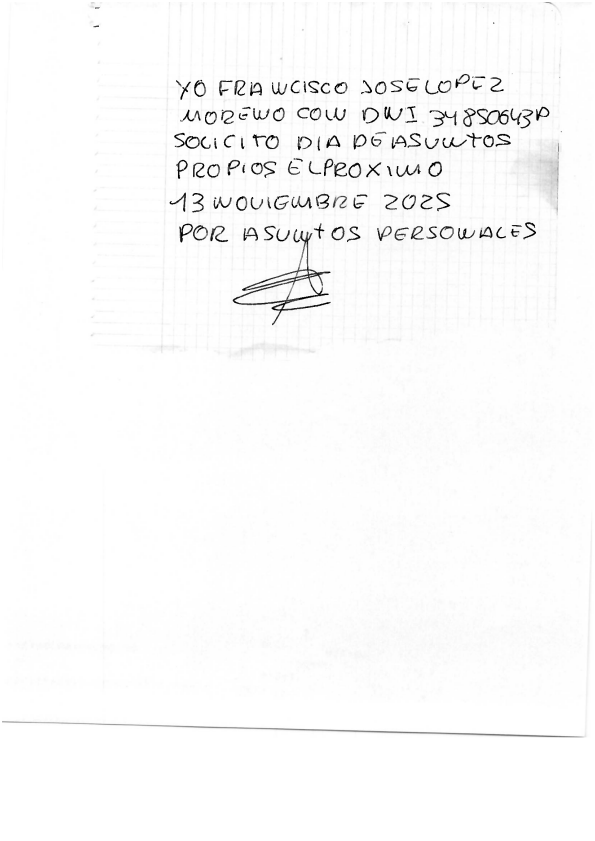 YO FRANCISCO JOSE LOPEZ
MORENO CON DNI 34850643P
SOLICITO DIA DE ASUNTOS
PROPIOS EL PROXIMO
13 NOVIEMBRE 2025
POR ASUNTOS PERSONALES